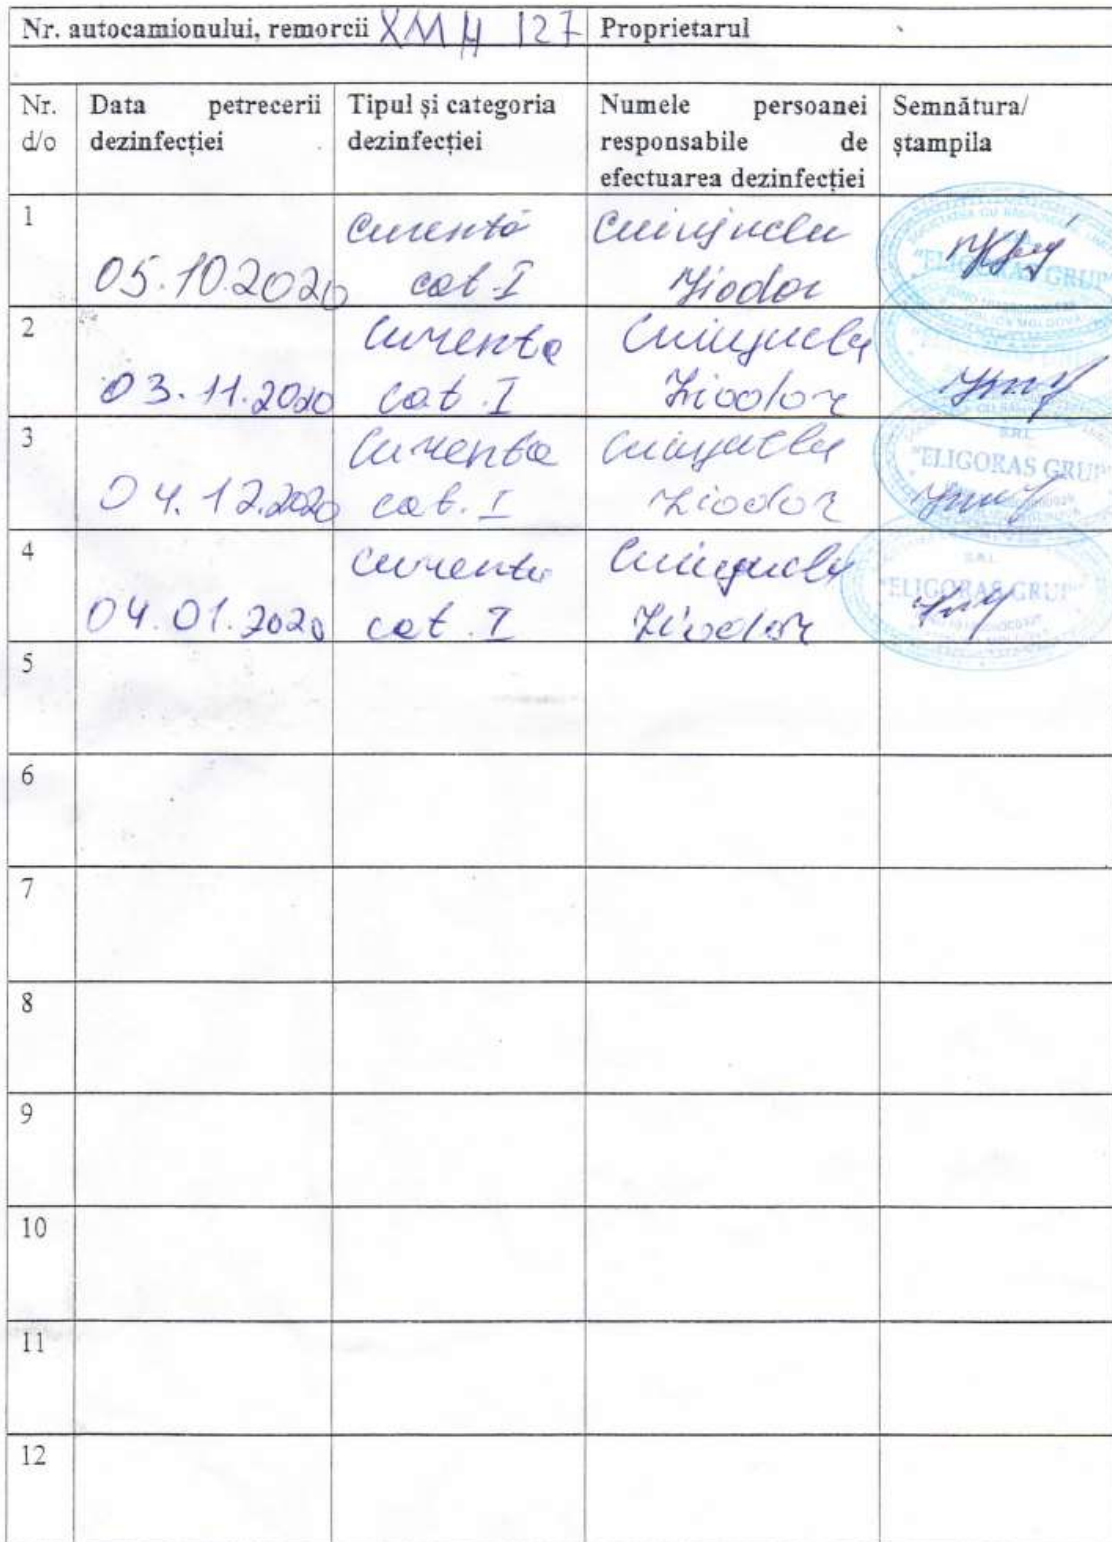 Nr. autocamionului, remorcii XMH 127 Proprietarul
Nr. d/o
Data petrecerii dezinfecției
Tipul și categoria dezinfecției
Numele persoanei responsabile de efectuarea dezinfecției
Semnătura/ ștampila
1
05.10.2020
Curentă
cat. I
"ELIGORAS GRUP"
2
03.11.2020
Curenta
cat. I
3
04.12.2020
Curenta
cat. I
S.R.L.
"ELIGORAS GRUP"
4
04.01.2020
Curenta
cat. I
S.R.L.
"ELIGORAS GRUP"
5
6
7
8
9
10
11
12